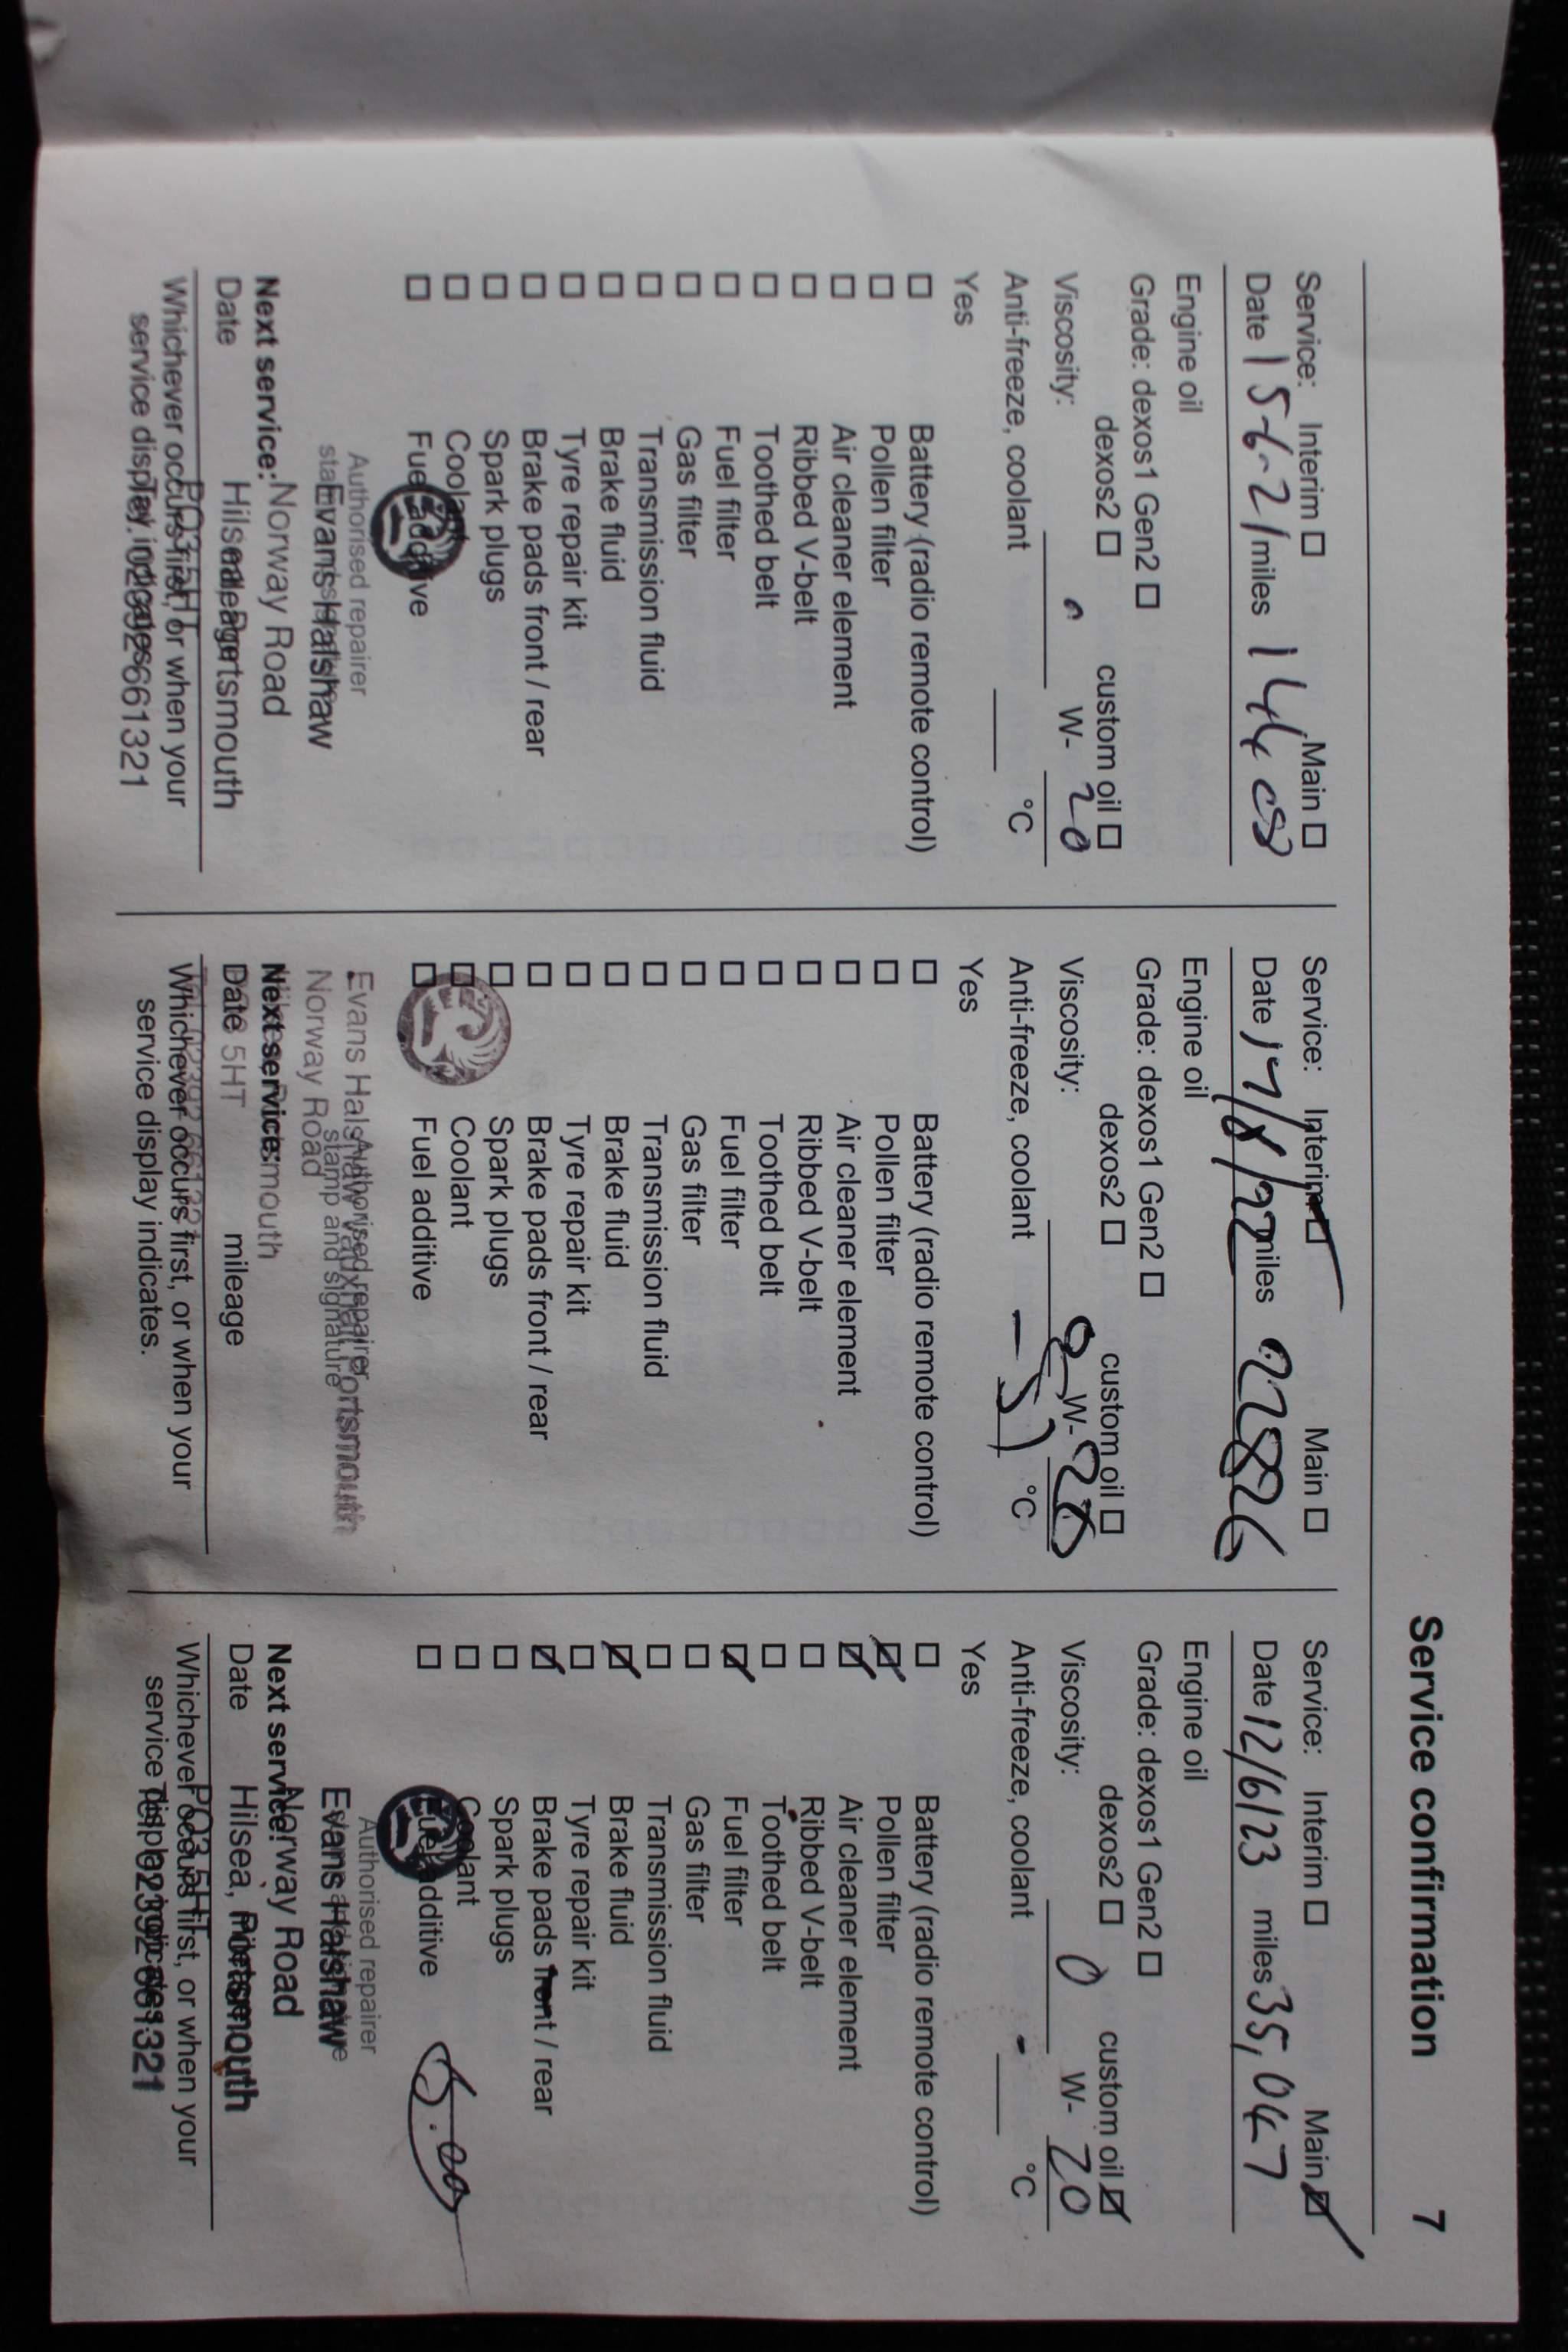 Service confirmation 7
Service: Interim ☐ Main ☐
Date 15-6-21 miles
Engine oil
Grade: dexos1 Gen2 ☐
dexos2 ☐ custom oil ☐
Viscosity: W- 20
Anti-freeze, coolant °C
Yes
☐ Battery (radio remote control)
☐ Pollen filter
☐ Air cleaner element
☐ Ribbed V-belt
☐ Toothed belt
☐ Fuel filter
☐ Gas filter
☐ Transmission fluid
☐ Brake fluid
☐ Tyre repair kit
☐ Brake pads front / rear
☐ Spark plugs
☐ Coolant
☐ Fuel additive
Authorised repairer
Evans Halshaw
Norway Road
Next service:
Hilsea, Portsmouth
Date
PO3 5HT
Whichever occurs first, or when your
Tel: 02392 661321
service display indicates
Service: Interim ☑ Main ☐
Date 17/8/22 miles 22826
Engine oil
Grade: dexos1 Gen2 ☐
dexos2 ☐ custom oil ☐
Viscosity: 0 W- 20
Anti-freeze, coolant °C
Yes
☐ Battery (radio remote control)
☐ Pollen filter
☐ Air cleaner element
☐ Ribbed V-belt
☐ Toothed belt
☐ Fuel filter
☐ Gas filter
☐ Transmission fluid
☐ Brake fluid
☐ Tyre repair kit
☐ Brake pads front / rear
☐ Spark plugs
☐ Coolant
☐ Fuel additive
Authorised repairer
Evans Halshaw Vauxhall Portsmouth
stamp and signature
Norway Road
Next service:
Date mileage
5HT
Whichever occurs first, or when your
service display indicates.
Service: Interim ☐ Main ☑
Date 12/6/23 miles 35,047
Engine oil
Grade: dexos1 Gen2 ☐
dexos2 ☐ custom oil ☑
Viscosity: 0 W- 20
Anti-freeze, coolant - °C
Yes
☐ Battery (radio remote control)
☑ Pollen filter
☑ Air cleaner element
☐ Ribbed V-belt
☐ Toothed belt
☑ Fuel filter
☐ Gas filter
☐ Transmission fluid
☑ Brake fluid
☐ Tyre repair kit
☑ Brake pads front / rear
☐ Spark plugs
☐ Coolant
☐ Fuel additive
Authorised repairer
Evans Halshaw
Norway Road
Next service:
Hilsea, Portsmouth
Date
PO3 5HT
Whichever occurs first, or when your
Tel: 02392 661321
service display